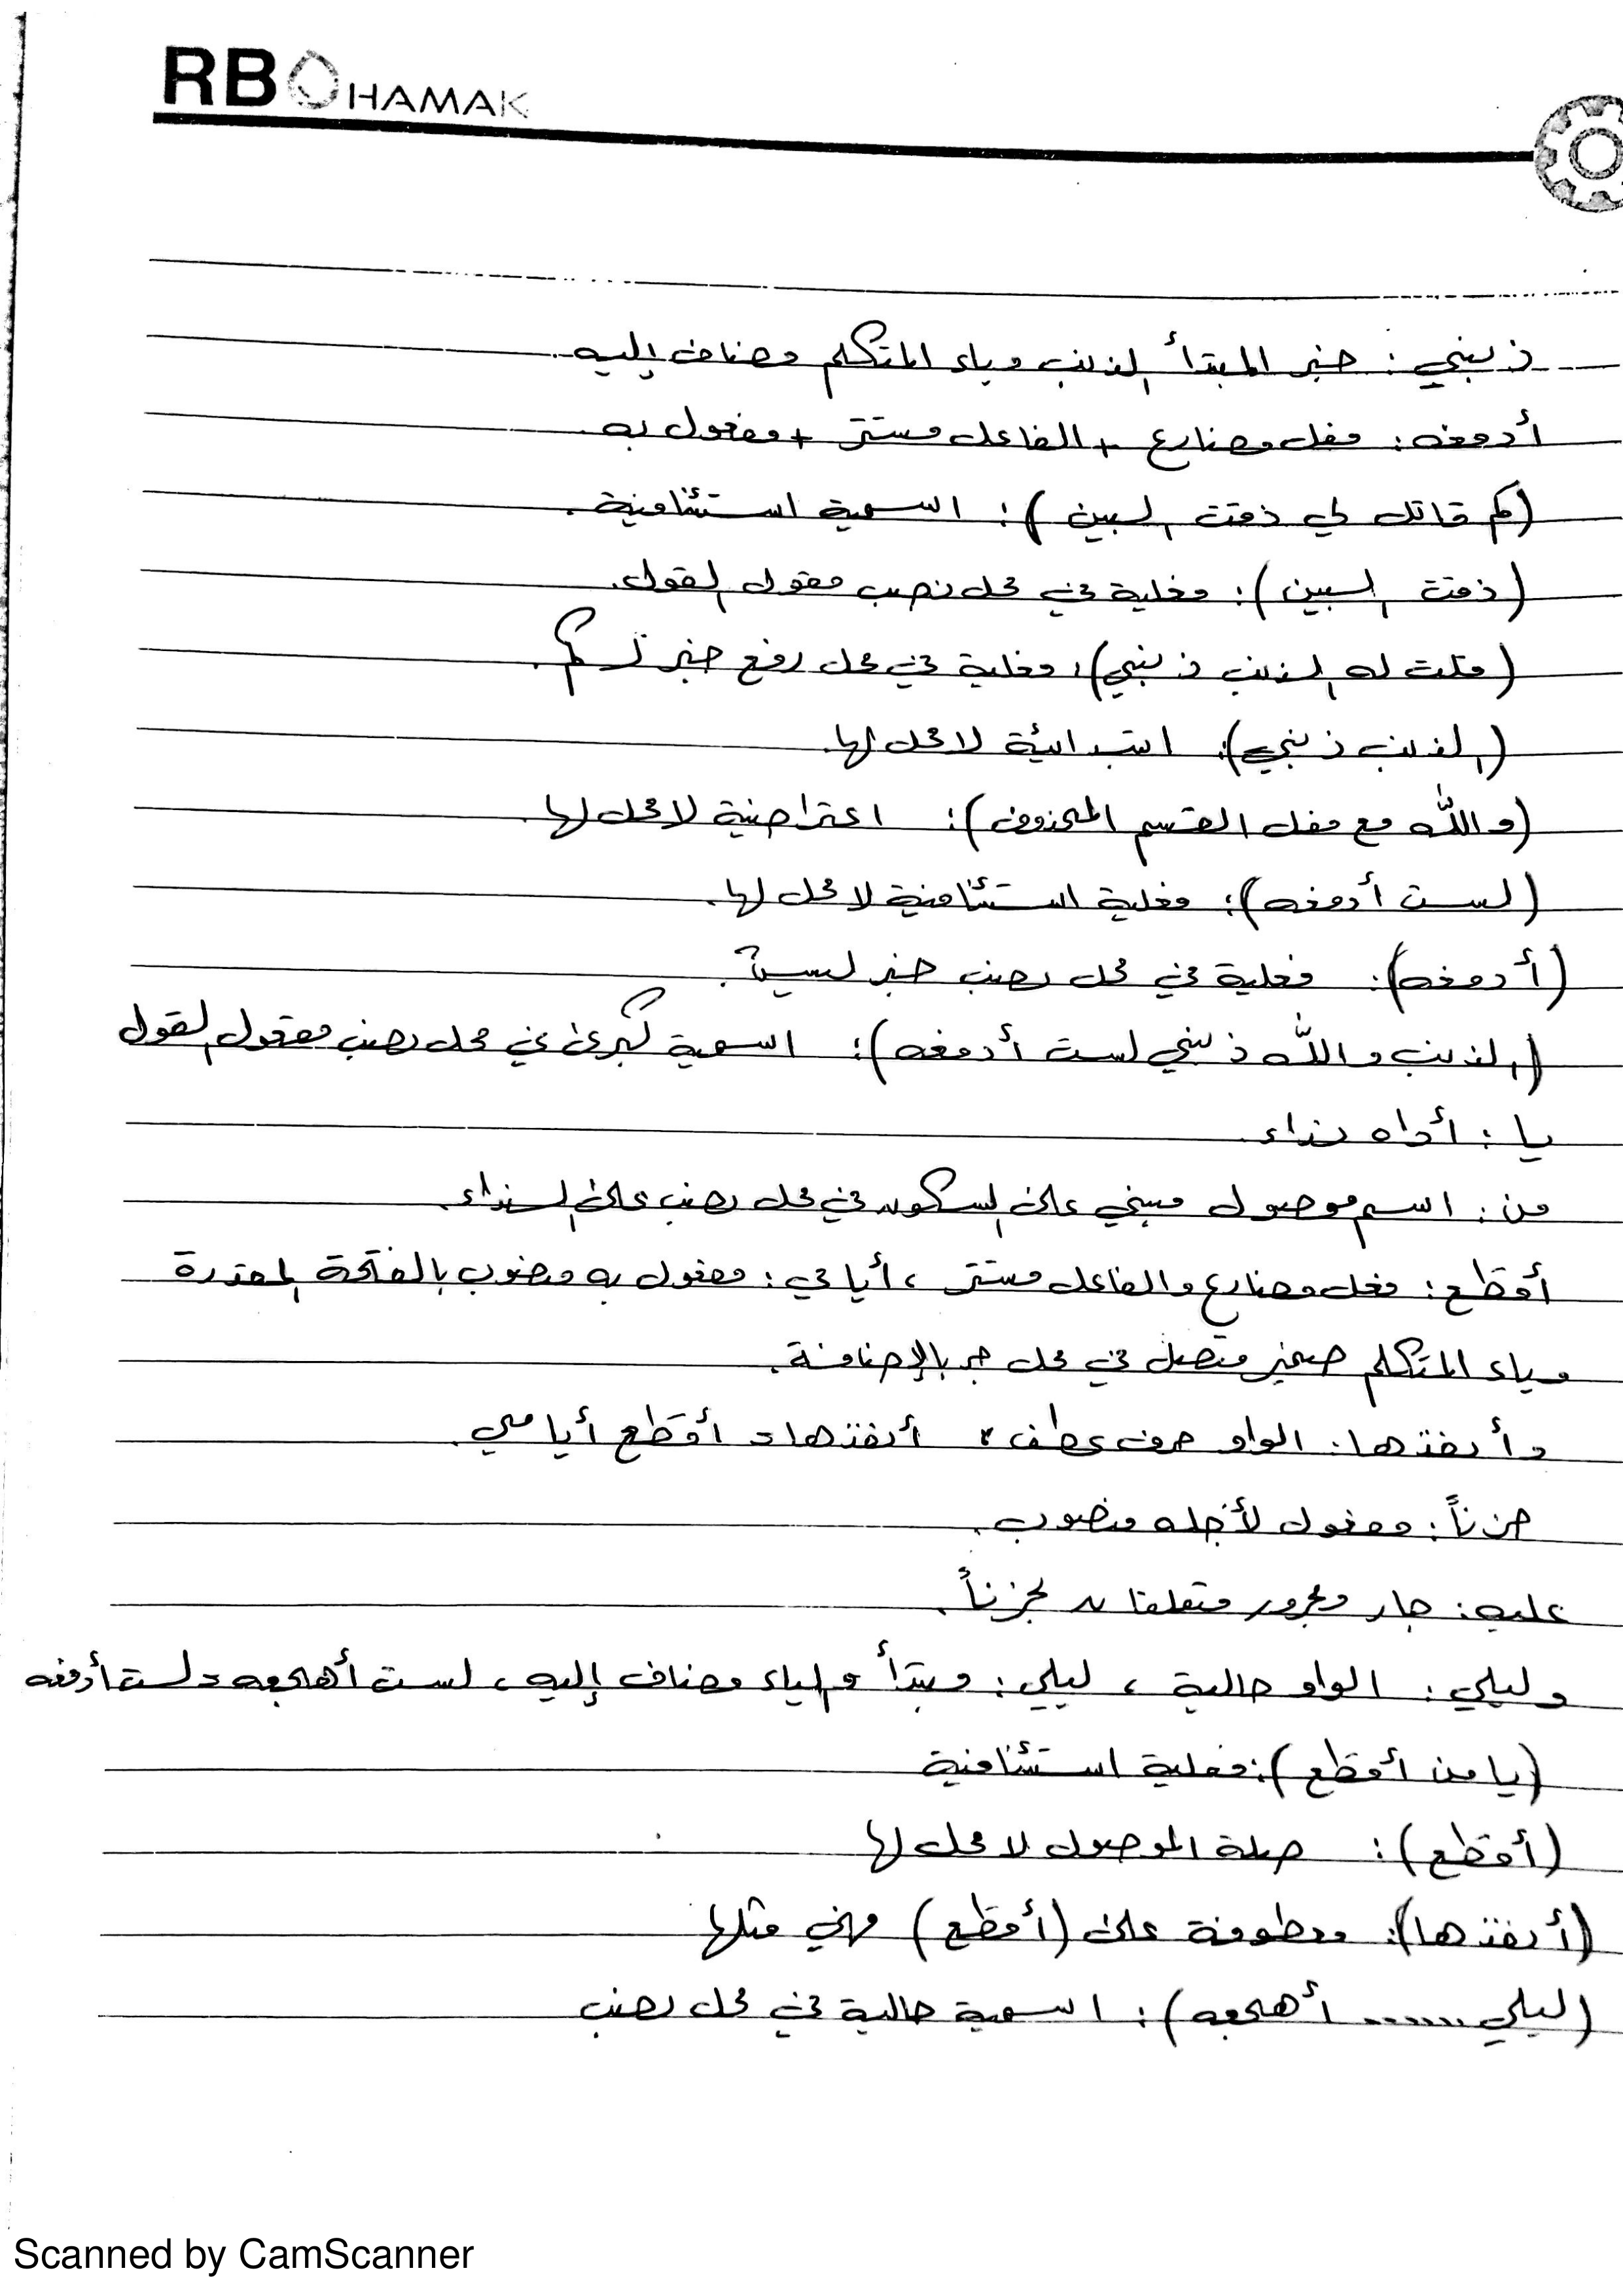 RB HAMAK
ذنبي: خبر المبتدأ الذنب وياء المتكلم مضاف إليه
أدفعه: فعل مضارع + الفاعل مستتر + مفعول به
(كم قائل لي ذقت البين): اسمية استئنافية.
(ذقت البين): فعلية في محل نصب مقول القول.
(قلت له الذنب ذنبي): فعلية في محل رفع خبر لـ كم.
(الذنب ذنبي): ابتدائية لا محل لها.
(والله مع فعل القسم المحذوف): اعتراضية لا محل لها.
(لست أدفعه): فعلية استئنافية لا محل لها.
(أدفعه): فعلية في محل نصب خبر ليس.
(الذنب والله ذنبي لست أدفعه): اسمية كبرى في محل نصب مقول القول
يا: أداه نداء
من: اسم موصول مبني على السكون في محل نصب على النداء.
أقطع: فعل مضارع والفاعل مستتر، أيامي: مفعول به منصوب بالفتحة المقدرة
وياء المتكلم ضمير متصل في محل جر بالإضافة.
وأنفذها: الواو حرف عطف، أنفذها = أقطع أيامي.
حزناً: مفعول لأجله منصوب.
عليه: جار ومجرور متعلقان بحزناً.
وليلي: الواو حالية، ليلي: مبتدأ والياء مضاف إليه، لست أهجعه = لست أدفعه
(يا من أقطع): فعلية استئنافية
(أقطع): صلة الموصول لا محل لها
(أنفذها): معطوفة على (أقطع) فهي مثلها
(ليلي ...... أهجعه): اسمية حالية في محل نصب
Scanned by CamScanner